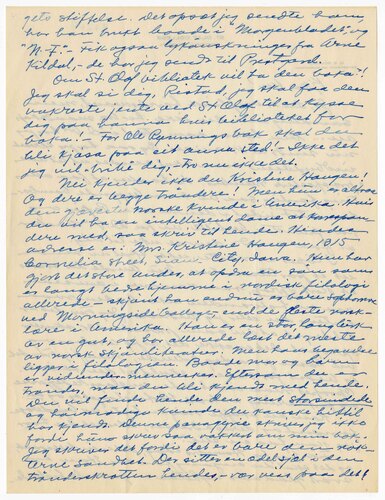 gets stiftelse. Det opsøt jeg sendte ham,
har han brukt baade i "Morgenbladet" og
"N. T." - Fik ogsaa lykønskninger fra Arne
Kildal, - de har jeg sendt til Prestgard.
Om St Olaf bibliotek vil ha den boka?!
Jeg skal si dig, Ristad, jeg skal faa den
vakreste jente ved St Olaf til at kysse
dig paa vanna hvis biblioteket faar
boka! - For Ole Rynnings bok skal den
bli kjøsa paa eit anna sted! - Ikke det
jeg vil bribe dig, - tro nu ikke det.
Nei kjender ikke du Kristine Haugen!
Og dere er begge trøndere! Men hun er altsaa
den gjæveste norske kvinde i Amerika. Hvis
du vil ha en intelligent dame at korrespon-
dere med, saa skriv til hende. Hendes
adresse er: Mrs. Kristine Haugen, 1815
Cornelia street, Sioux City, Iowa. Hun har
gjort det store under, at opdra en søn som
er langt bedre hjemme i nordisk filologi
allerede - skjønt han endnu er bare Sophomore
ved Morningside College - end de fleste norsk-
lære i Amerika. Han er en stor, lang sterk
av en gut, og har allerede læst det meste
av norsk skjønliteratur. Men hans begavelse
ligger i filologien. Baade mor og barn
er vidundermennesker. Eftersom du er
trønder, maa du bli kjendt med hende.
Du vil finde hende den mest storsindede
og høimodige kvinde du kanske hittil
har kjendt. Denne panegyre skrives jeg ikke
fordi hun skrev saa vakkert om min bok.
Jeg skriver det fordi det er bare den nøk-
terne sandhet. Der sitter en adelsjel i den
trønderskrotten hendes, - vær viss paa det!